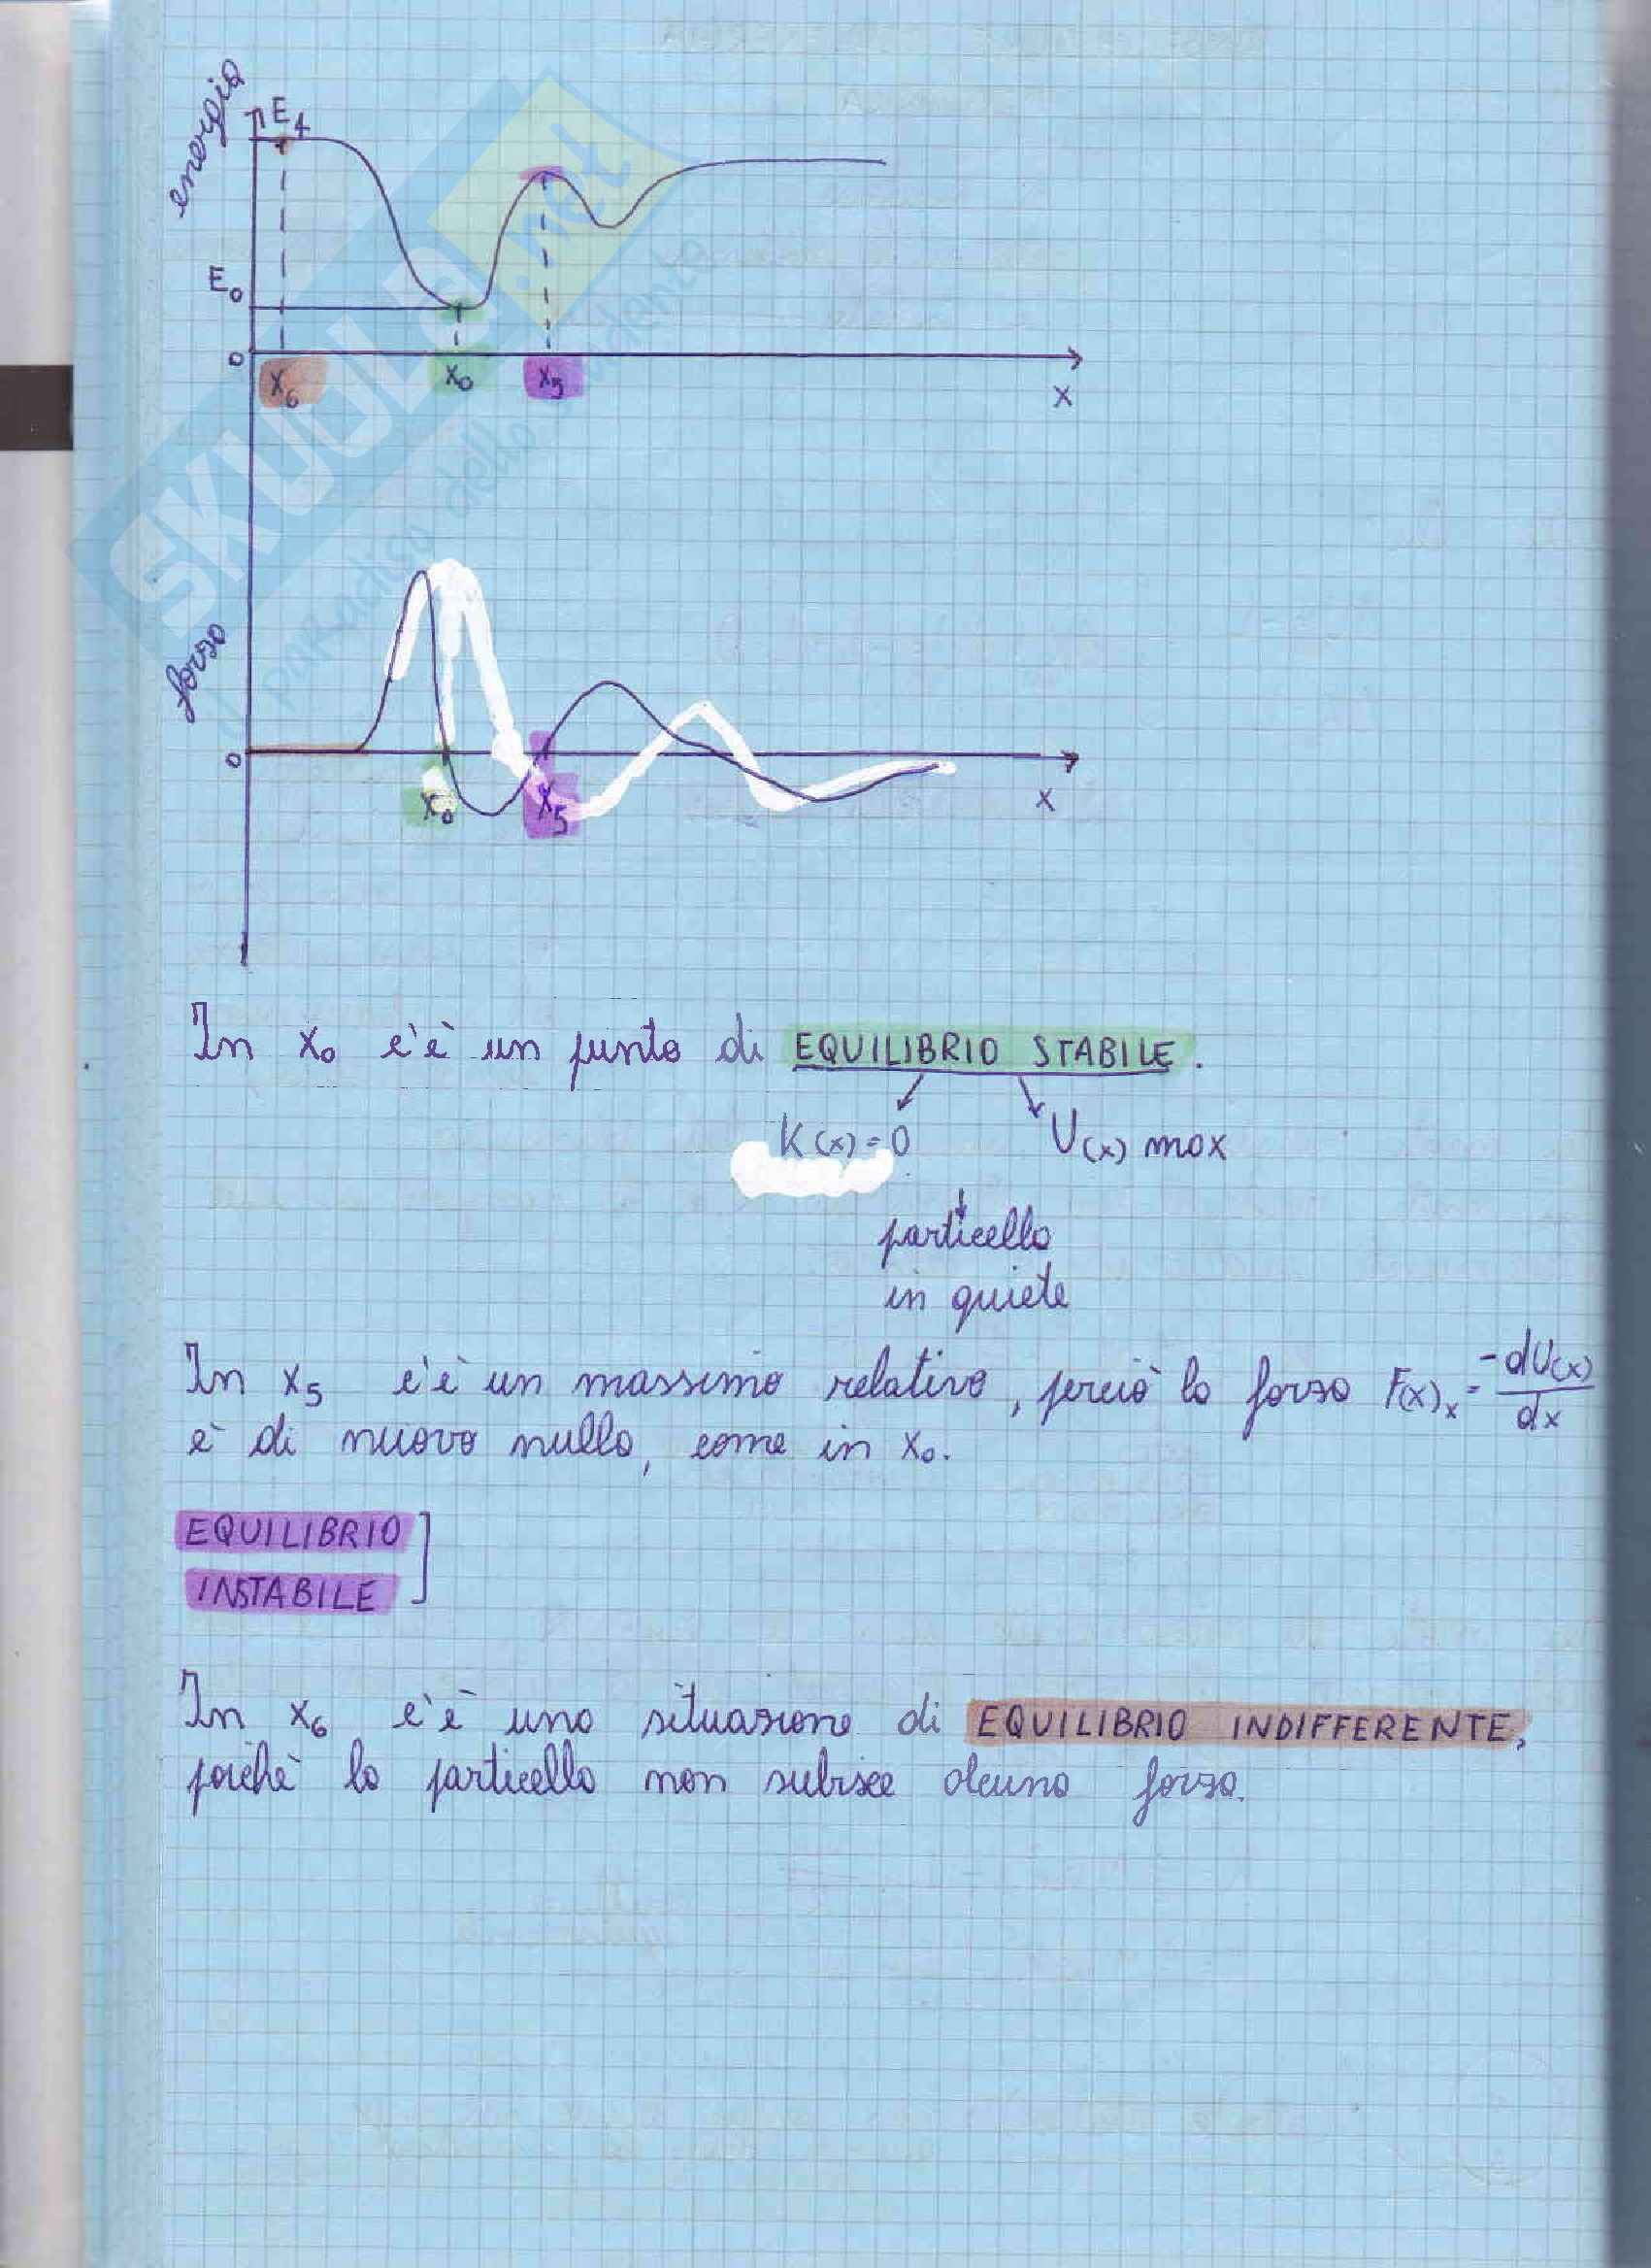 energia
E4
E0
0
x6 x0 x5
x
SKUOLA.net
paradiso dello studente
forza
0
x0 x5
x
In x0 c'è un punto di EQUILIBRIO STABILE.
K(x)=0 U(x) max
particella
in quiete
In x5 c'è un massimo relativo, perciò la forza F(x)x = -dU(x)/dx
è di nuovo nulla, come in x0.
EQUILIBRIO
INSTABILE
In x6 c'è una situazione di EQUILIBRIO INDIFFERENTE,
poichè la particella non subisce alcuna forza.